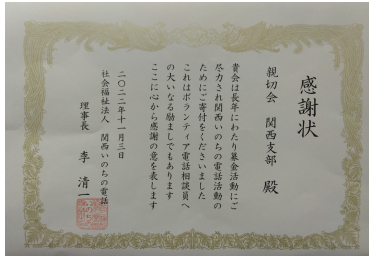 感謝状
親切会 関西支部 殿
貴会は長年にわたり募金活動にご
尽力され関西いのちの電話活動の
ためにご寄付をくださいました
これはボランティア電話相談員へ
の大いなる励ましでもあります
ここに心から感謝の意を表します
二〇二二年十一月三日
社会福祉法人 関西いのちの電話
理事長 李 清一